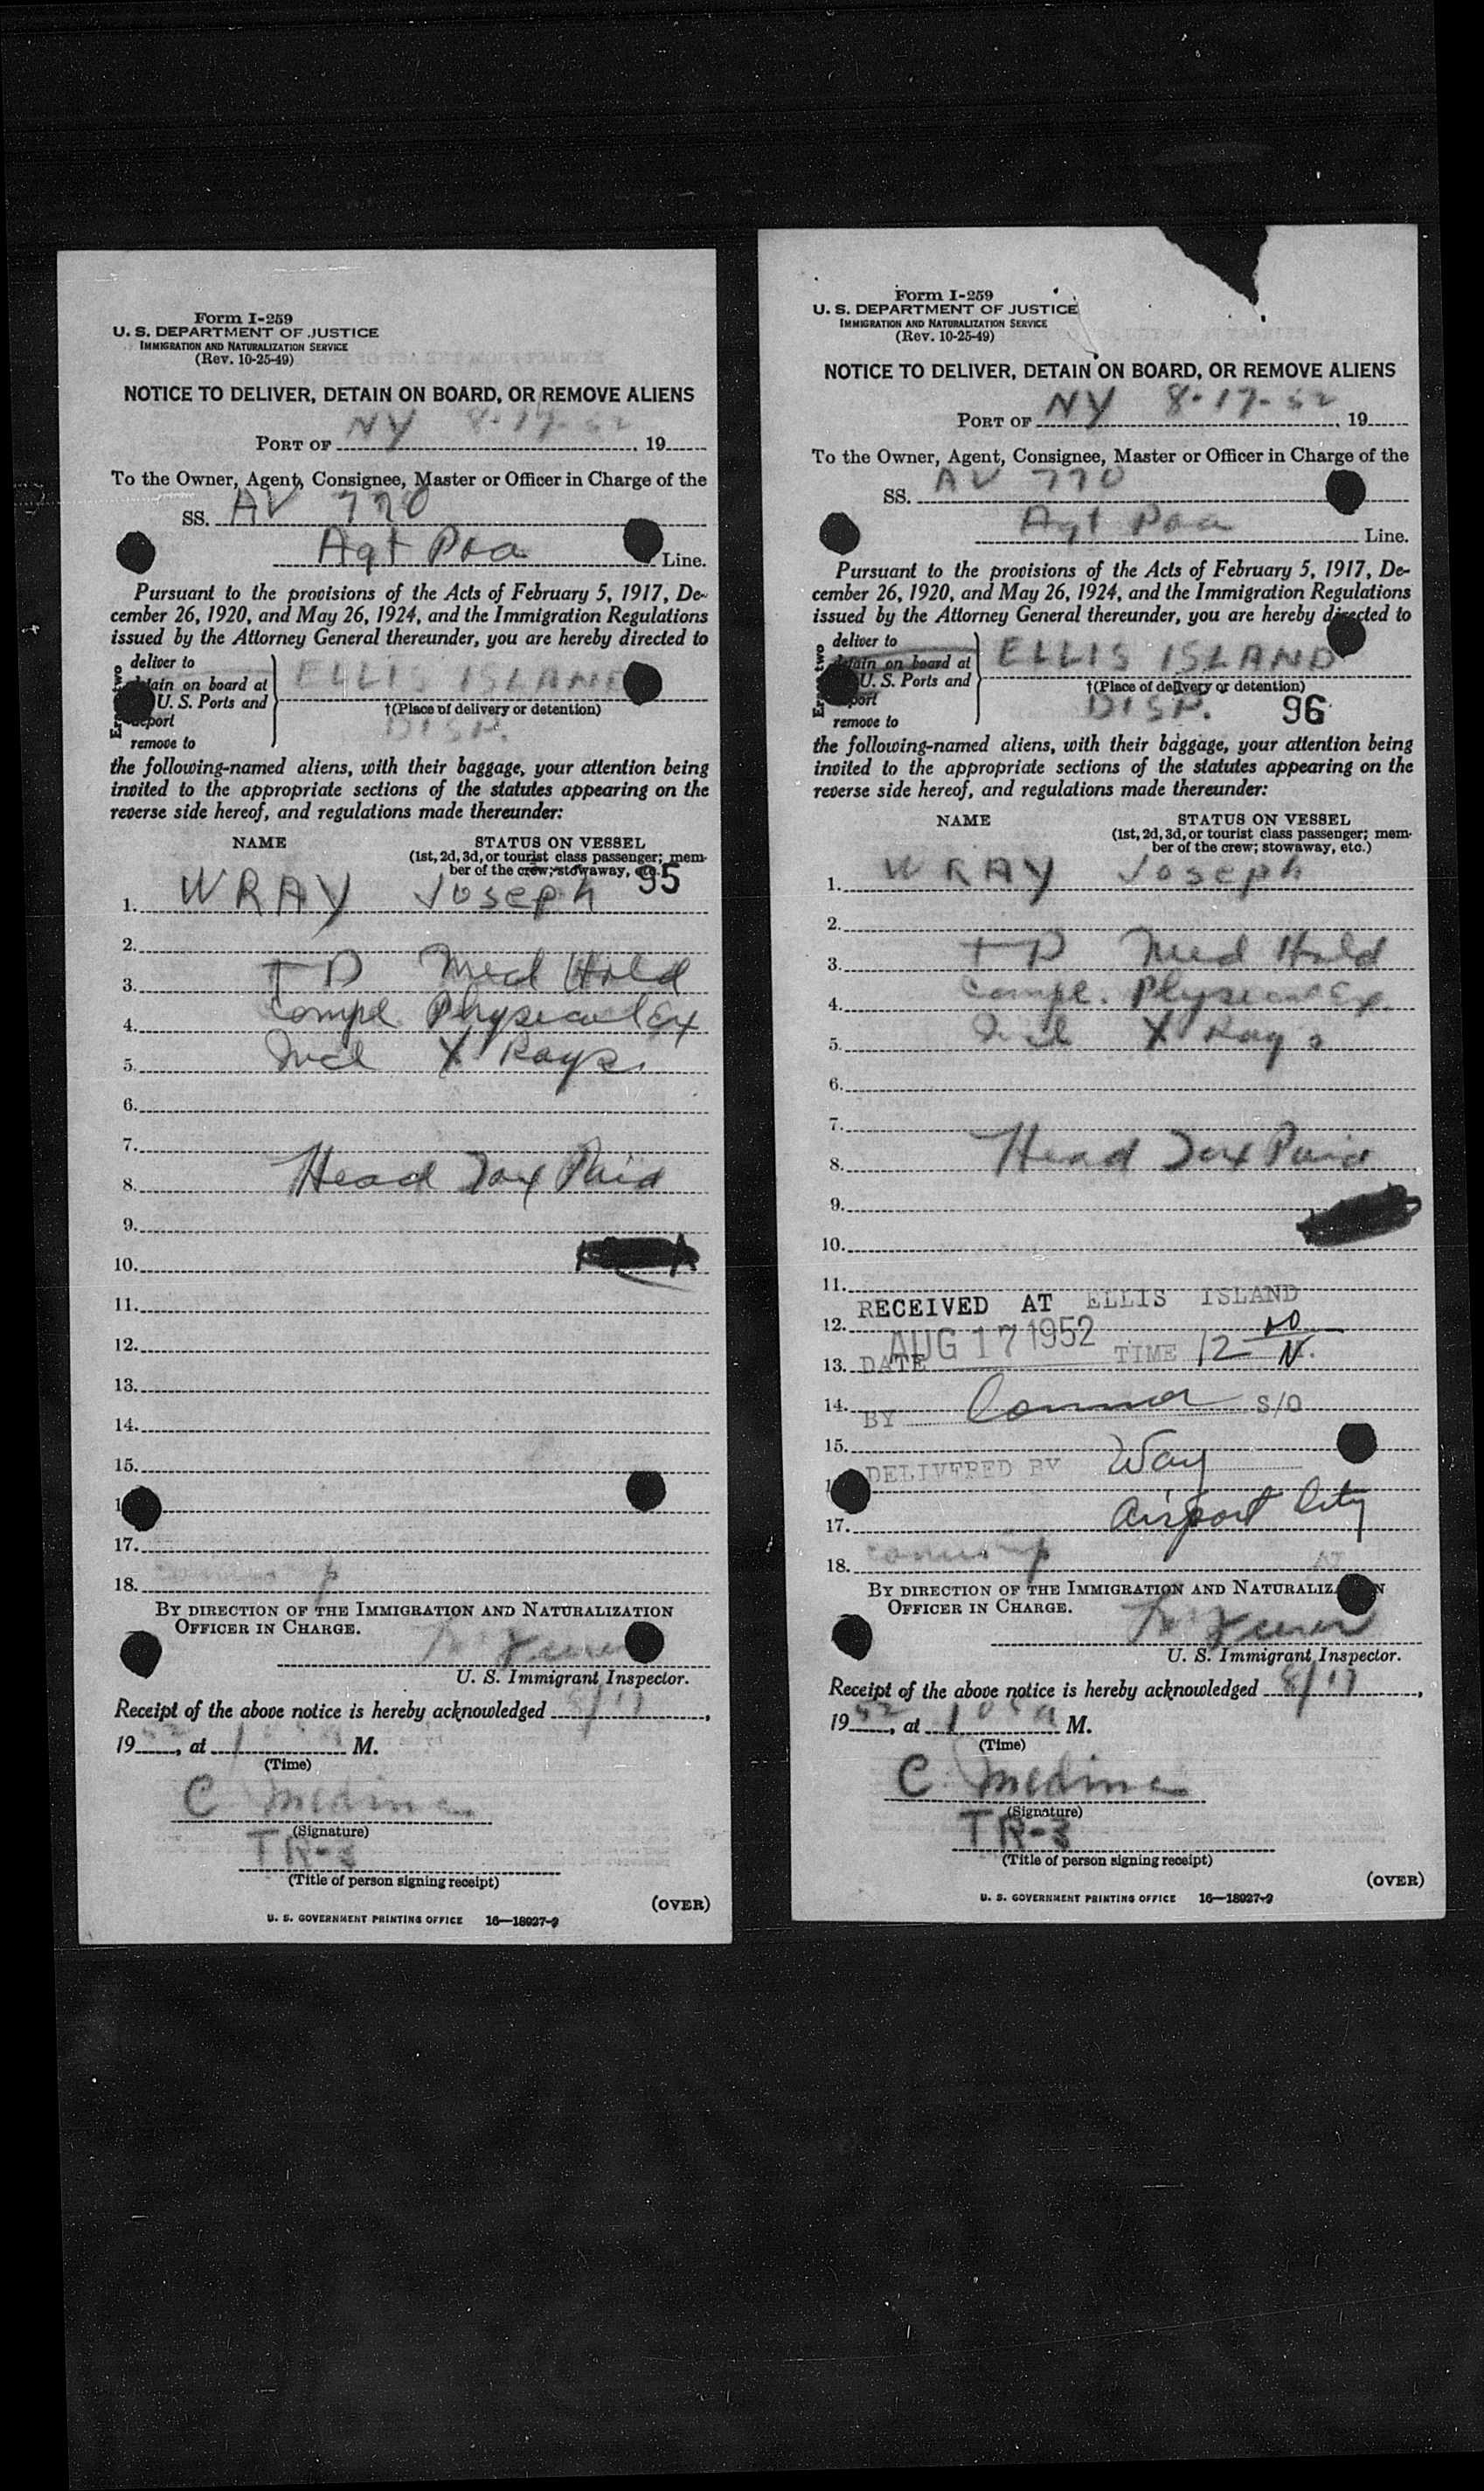 Form I-259
U. S. DEPARTMENT OF JUSTICE
IMMIGRATION AND NATURALIZATION SERVICE
(Rev. 10-25-49)
NOTICE TO DELIVER, DETAIN ON BOARD, OR REMOVE ALIENS
PORT OF NY 8-17-52, 19
To the Owner, Agent, Consignee, Master or Officer in Charge of the
SS. AV 770
Agt Paa Line.
Pursuant to the provisions of the Acts of February 5, 1917, De-
cember 26, 1920, and May 26, 1924, and the Immigration Regulations
issued by the Attorney General thereunder, you are hereby directed to
deliver to
tain on board at ELLIS ISLAND
U. S. Ports and
†(Place of delivery or detention)
port DISP.
remove to
the following-named aliens, with their baggage, your attention being
invited to the appropriate sections of the statutes appearing on the
reverse side hereof, and regulations made thereunder:
NAME STATUS ON VESSEL
(1st, 2d, 3d, or tourist class passenger; mem-
ber of the crew; stowaway, etc.) 95
1. WRAY Joseph
2.
3. TD Med Hold
4. Compl. Physical Ex
5. Incl X Rays
6.
7.
8. Head Tax Paid
9.
10.
11.
12.
13.
14.
15.
1
17.
18.
BY DIRECTION OF THE IMMIGRATION AND NATURALIZATION
OFFICER IN CHARGE.
U. S. Immigrant Inspector.
Receipt of the above notice is hereby acknowledged 8/17,
19 52, at M.
(Time)
C Medina
(Signature)
TR-3
(Title of person signing receipt)
(OVER)
U. S. GOVERNMENT PRINTING OFFICE 16—18937-2
Form I-259
U. S. DEPARTMENT OF JUSTICE
IMMIGRATION AND NATURALIZATION SERVICE
(Rev. 10-25-49)
NOTICE TO DELIVER, DETAIN ON BOARD, OR REMOVE ALIENS
PORT OF NY 8-17-52, 19
To the Owner, Agent, Consignee, Master or Officer in Charge of the
SS. AV 770
Agt Paa Line.
Pursuant to the provisions of the Acts of February 5, 1917, De-
cember 26, 1920, and May 26, 1924, and the Immigration Regulations
issued by the Attorney General thereunder, you are hereby directed to
deliver to
tain on board at ELLIS ISLAND
U. S. Ports and
†(Place of delivery or detention)
port DISP. 96
remove to
the following-named aliens, with their baggage, your attention being
invited to the appropriate sections of the statutes appearing on the
reverse side hereof, and regulations made thereunder:
NAME STATUS ON VESSEL
(1st, 2d, 3d, or tourist class passenger; mem-
ber of the crew; stowaway, etc.)
1. WRAY Joseph
2.
3. TD Med Hold
4. Compl. Physical Ex.
5. Incl X Rays
6.
7.
8. Head Tax Paid
9.
10.
11.
RECEIVED AT ELLIS ISLAND
12.
13. DATE AUG 17 1952 TIME 12 00 N.
14. BY Connor S/O
15.
1 DELIVERED BY Way
17. Airport City
18.
BY DIRECTION OF THE IMMIGRATION AND NATURALIZATION
OFFICER IN CHARGE.
U. S. Immigrant Inspector.
Receipt of the above notice is hereby acknowledged 8/17,
19 52, at M.
(Time)
C. Medina
(Signature)
TR-3
(Title of person signing receipt)
(OVER)
U. S. GOVERNMENT PRINTING OFFICE 16—18937-2